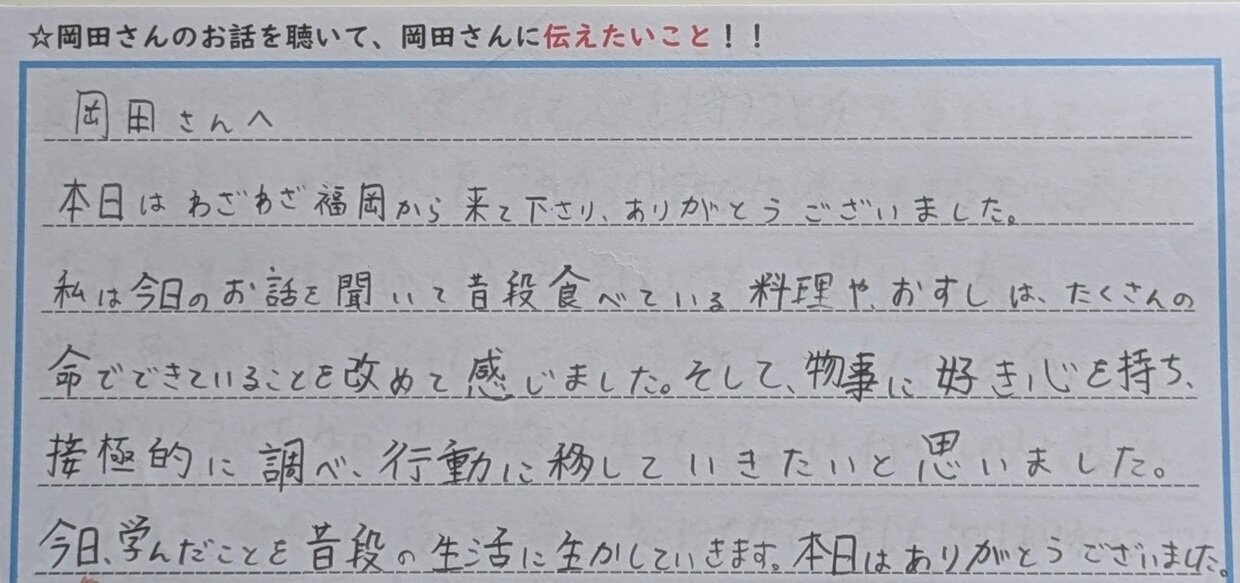 ☆岡田さんのお話を聴いて、岡田さんに伝えたいこと！！
岡田さんへ
本日はわざわざ福岡から来て下さり、ありがとうございました。
私は今日のお話を聞いて昔段食べている料理や、おすしは、たくさんの
命でできていることを改めて感じました。そして、物事に好き心を持ち、
接極的に調べ、行動に移していきたいと思いました。
今日、学んだことを昔段の生活に生かしていきます。本日はありがとうございました。